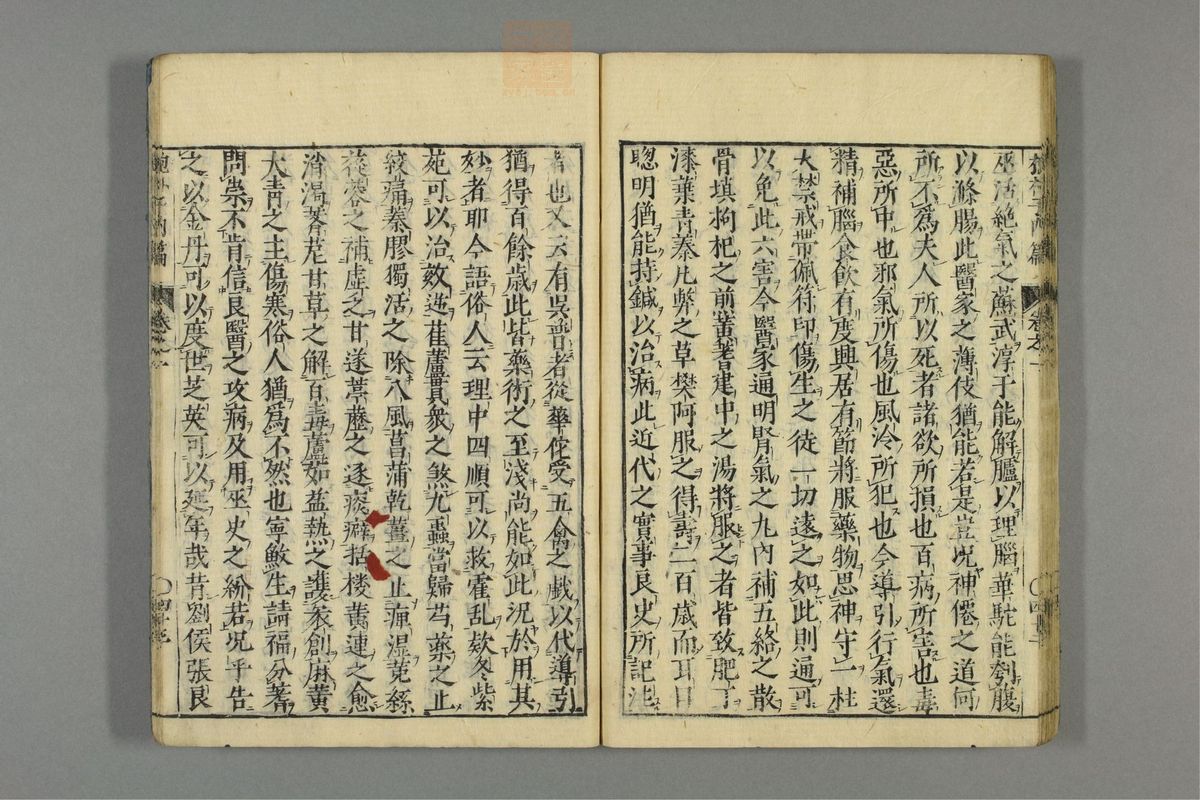 巫活絶氣之蘇武淳于能解臚以理腦華駝能刳腹
以滌腸此醫家之薄伎猶能若是豈况神僊之道何
所不爲夫人所以死者諸欲所損也百病所害也毒
惡所中也邪氣所傷也風冷所犯也今導引行氣還
精補腦食飲有度興居有節將服藥物思神守一柱
大禁戒帶佩符印傷生之徒一切遠之如此則通可
以免此六害今醫家通明腎氣之九内補五絡之散
骨填拘杞之煎黃蓍建中之湯將服之者皆致肥丁
漆葉青蓁凡弊之草樊阿服之得壽二百歳而耳目
聰明猶能持鍼以治病此近代之實事良史所記注
者也又云有吳普者從華佗受五禽之戲以代導引
猶得百餘歳此皆藥術之至淺尚能如此况於用其
妙者耶今語俗人云理中四順可以救霍乱欵冬紫
苑可以治欬逆萑蘆貫衆之煞九蟲當歸芍藥之止
絞痛蓁膠獨活之除八風菖蒲乾薑之止痺湿菟絲
蓯蓉之補虚乏甘遂葶藶之逐痰癖括楼黃連之愈
消渴薺苨甘草之解百毒蘆如益熱之護衆創麻黃
大青之主傷寒俗人猶爲不然也寧煞生請福分蓍
問祟不肯信良醫之攻病及用巫史之紛若况乎告
之以金丹可以度世芝英可以延年哉昔劉侯張良